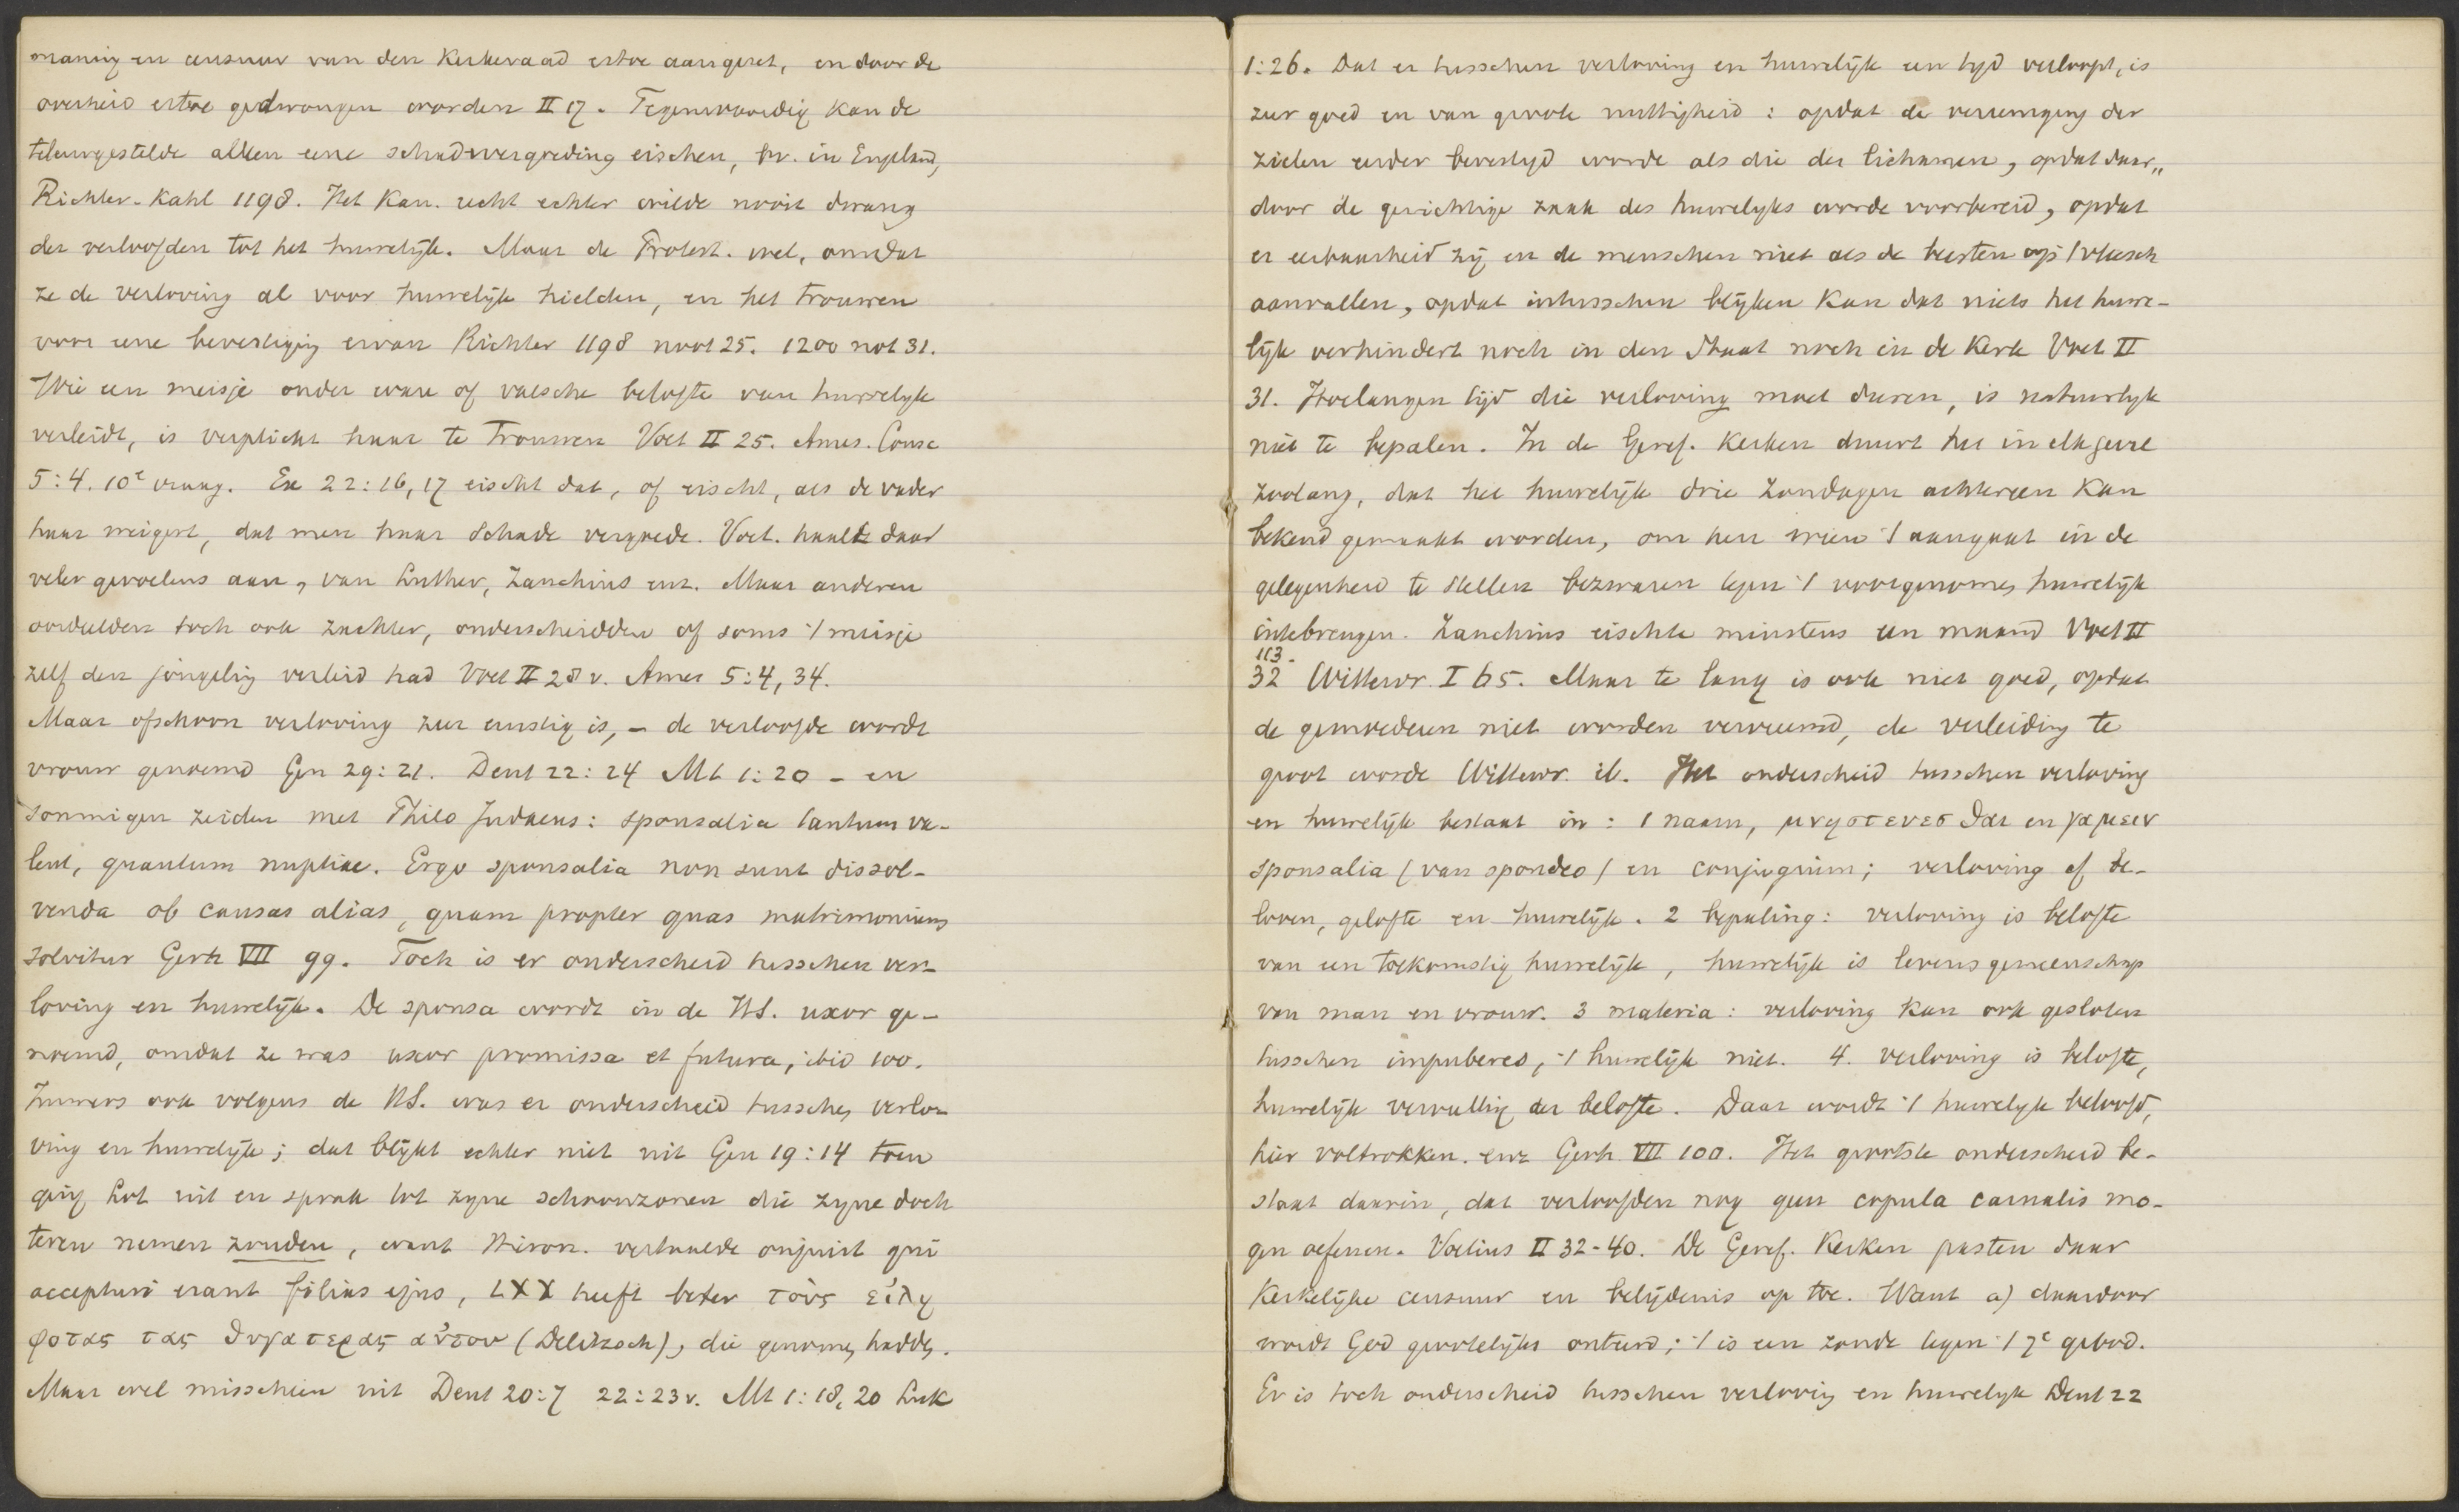 maning en censuur van den Kerkeraad ertoe aangezet, en door de
overheid ertoe gedwongen worden II 17. Tegenwoordig kan de
teleurgestelde alleen eene schadevergoeding eischen, bv. in Engeland,
Richter-Kahl 1198. Het Kan. recht echter wilde nooit dwang
der verloofden tot het huwelijk. Maar de Protest. wel, omdat
ze de verloving al voor huwelijk hielden, en het trouwen
voor eene bevestiging ervan Richter 1198 noot 25. 1200 not 31.
Wie een meisje onder ware of valsche belofte van huwelijk
verleidt, is verplicht haar te trouwen Voet II 25. Ames. Consc
5:4. 10e vraag. Ex 22:16,17 eischt dat, of eischt, als de vader
haar weigert, dat men haar schade vergoede. Voet. haalt daar
veler gevoelens aan, van Luther, Zanchius enz. Maar anderen
oordeelden toch ook zachter, onderscheidden of soms 't meisje
zelf den jongeling verleid had Voet II 28 v. Ames 5:4, 34.
Maar ofschoon verloving zeer ernstig is, – de verloofde wordt
vrouw genoemd Gen 29:21. Deut 22:24 Mt 1:20 – en
sommigen zeiden met Philo Judaeus: sponsalia tantum va-
lent, quantum nuptiae. Ergo sponsalia non sunt dissol-
venda ob causas alias, quam propter quas matrimonium
solvitur Gerh VII 99. Toch is er onderscheid tusschen ver-
loving en huwelijk. De sponsa wordt in de H.S. uxor ge-
noemd, omdat ze was uxor promissa et futura, ibid 100.
Immers ook volgens de H.S. was er onderscheid tusschen verlo-
ving en huwelijk; dat blijkt echter niet uit Gen 19:14 toen
ging Lot uit en sprak tot zyne schoonzonen die zyne doch
teren nemen zouden, want Hieron. vertaalde onjuist qui
accepturi erant filias ejus, LXX heeft beter τοὺς εἰλη
φοτας τας θυγατερας αὐτου (Delitzsch), die genomen hadden.
Maar wel misschien uit Deut 20:7 22:23 v. Mt 1:18, 20 Luk
1:26. Dat er tusschen verloving en huwelijk een tyd verloopt, is
zeer goed en van groote nuttigheid: opdat de vereeniging der
zielen eerder bevestigd worde als die der lichamen, opdat daar„
door de gewichtige zaak des huwelyks worde voorbereid, opdat
er eerbaarheid zij en de menschen niet als de beesten op 't vleesch
aanvallen, opdat intusschen blijken kan dat niets het huwe-
lijk verhindert noch in den Staat noch in de Kerk Voet II
31. Hoelangen tijd die verloving moet duren, is natuurlyk
niet te bepalen. In de Geref. Kerken duurt het in elk geval
zoolang, dat het huwelijk drie Zondagen achtereen kan
bekend gemaakt worden, om hen wien 't aangaat in de
gelegenheid te stellen bezwaren tegen 't voorgenomen huwelijk
intebrengen. Zanchius eischte minstens een maand Voet II
113-
32 Wittewr. I 65. Maar te lang is ook niet goed, opdat
de gemoederen niet worden vervreemd, de verleiding te
groot worde Wittewr. ib. Het onderscheid tusschen verloving
en huwelijk bestaat in: 1 naam, μνηστευεσθαι en γαμειν
sponsalia (van spondeo) en conjugium; verloving of be-
loven, gelofte en huwelijk. 2 bepaling: verloving is belofte
van een toekomstig huwelijk, huwelijk is levensgemeenschap
van man en vrouw. 3 materia: verloving kan ook gesloten
tusschen impuberes, 't huwelijk niet. 4. verloving is belofte,
huwelijk vervulling der belofte. Daar wordt 't huwelyk beloofd,
hier voltrokken. enz Gerh VII 100. Het grootste onderscheid be-
staat daarin, dat verloofden nog geen copula carnalis mo-
gen oefenen. Voetius II 32-40. De Geref. Kerken pasten daar
Kerkelijke censuur en belijdenis op toe. Want a) daardoor
wordt God grootelijks onteerd; 't is een zonde tegen 't 7e gebod.
Er is toch onderscheid tusschen verloving en huwelyk Deut 22